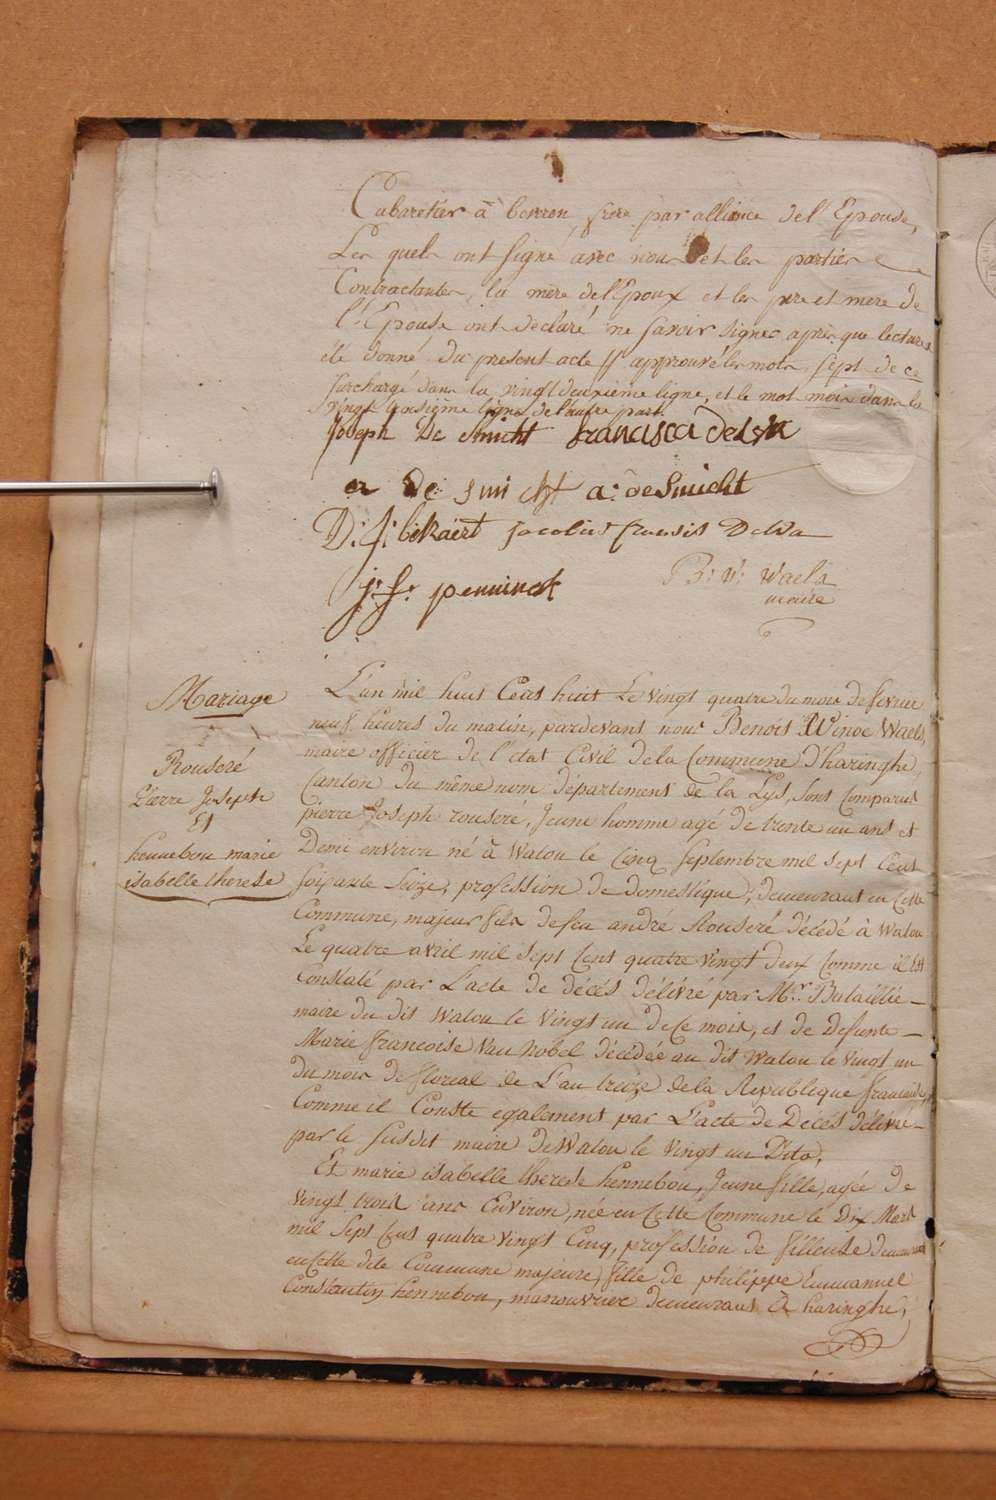 Cabaretier à berren, frere par alliance de l'Epouse,
Les quels ont signé avec nous et les parties
Contractantes, la mere de l'Epoux et les pere et mere de
l'Epouse ont déclaré ne savoir signer après que lecture a
été donné du present acte // approuvé les mots sept de ce
surchargé dans la vingt deuxieme ligne, et le mot mois dans la
vingt troisième ligne de l'autre part.
Joseph De Smicht francisca delva
de smicht a: deSmicht
D: J: bekaert jacobus fransis Delva
j: f: peninck
B: W: Waels
maire
Mariage
Rouseré
Pierre Joseph
Et
hennebou marie
isabelle therese
L'an mil huit Cens huit Le vingt quatre du mois de fevrier
neuf heures du matin, pardevant nous Benoit Winoc Waels,
maire officier de l'état Civil de la Commune d'haringhe,
Canton du même nom département de la Lys, sont Comparus
pierre Joseph rouseré, Jeune homme agé de trente un ans et
Demi environ né à Watou le Cinq septembre mil sept Cent
soixante seize, profession de domestique, demeurant en Cette
Commune, majeur fils de feu andré Rouseré décédé à Watou
Le quatre avril mil sept Cent quatre vingt deux Comme il Est
Constaté par L'acte de décés délivré par Mr. Bataillie
maire du dit Watou le vingt un de Ce mois, et de defunte
Marie francoise Van Nobel décédée au dit Watou le vingt un
du mois de floreal de L'an treize de la Republique francaise,
Comme il Conste egalement par L'acte de Décés délivré
par le susdit maire de Watou le vingt un Dito,
Et marie isabelle therese hennebou, Jeune fille, agée de
vingt trois ans Environ, née en Cette Commune le Dix Mars
mil sept Cens quatre vingt Cinq, profession de fileuse demeurant
en Cette dite Commune majeure, fille de philippe Emmanuel
Constantin hennebou, manouvrier demeurant à haringhe,